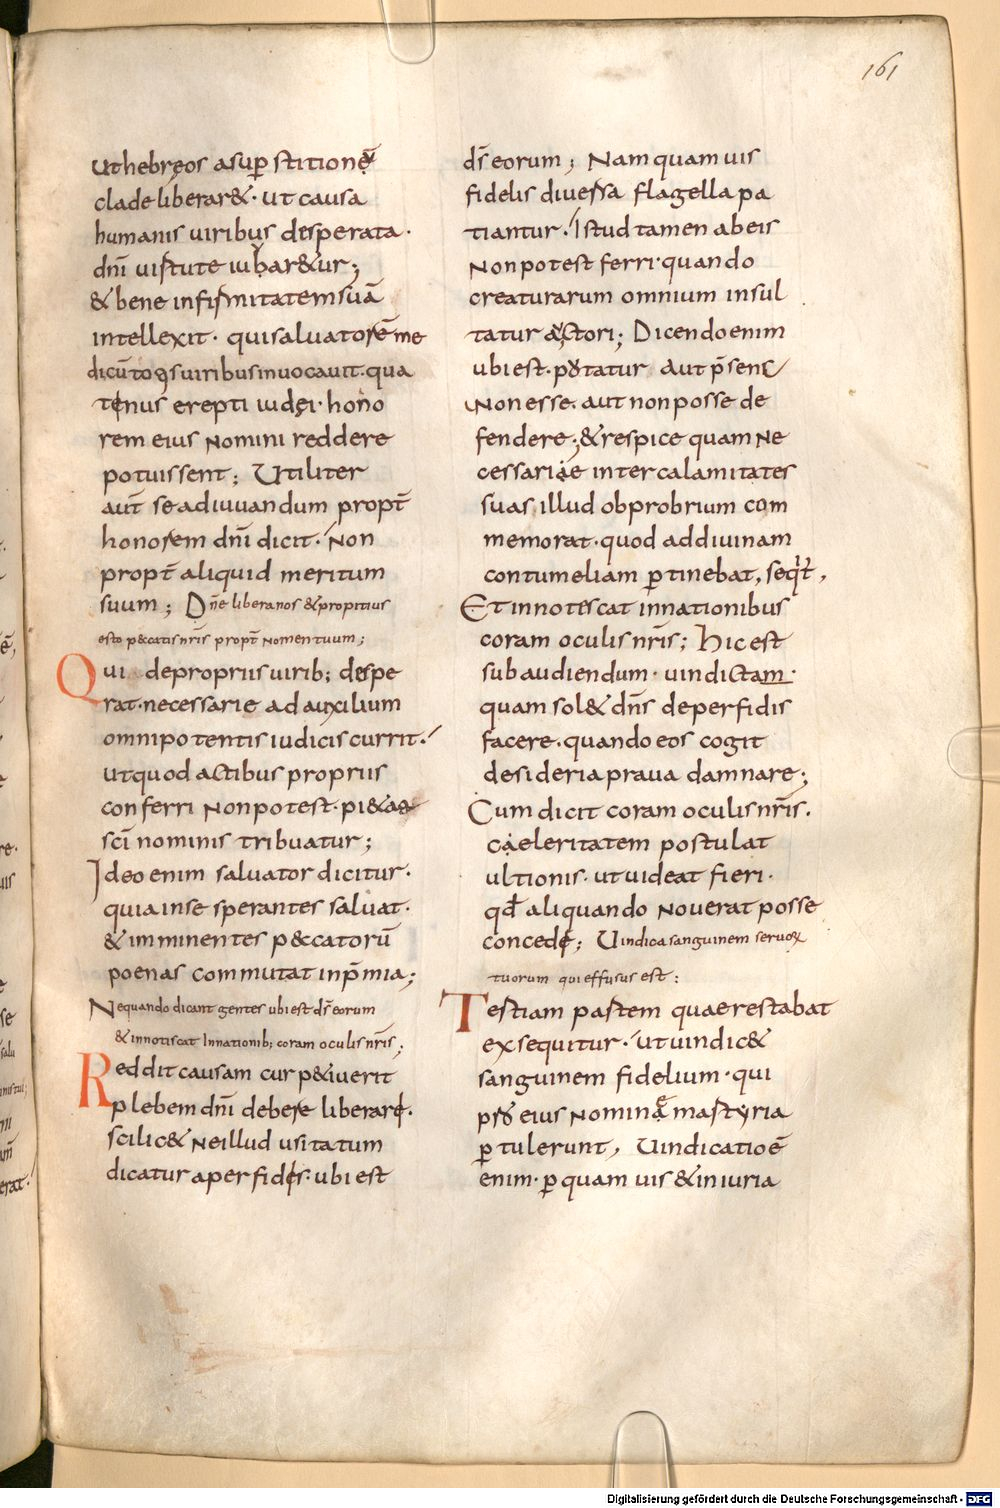 161
ut hebręos a sup̲erstitionę̄
clade liberar&· ut causa
humanis uiribus desperata·
dn̄i uirtute iubar&ur;
& bene infirmitatem suā
intellexit· qui saluatorē me
dicū to
suis uiribus inuocauit· qua
tenus erepti iudęi· hono
rem eius nomini reddere
potuissent; Utiliter
aut̄ se adiuuandum propt̄
honorem dn̄i dicit· Non
propt̄ aliquid meritum
suum; Dn̄e libera nos & propitius
esto peccatis nr̄is propt̄ nomen tuum;
Qui de propriis uirib; despe
rat· necessarie ad auxilium
omnipotentis iudicis currit·
ut quod actibus propriis
conferri non potest· pi&a&
sc̄i nominis tribuatur;
Ideo enim saluator dicitur·
quia in se sperantes saluat·
& imminentes peccatorū
poenas commutat in p̄mia;
Ne quando dicant gentes ubi est ds̄ eorum
& innotiscat Innationib; coram oculis nr̄is;
Reddit causam cur p&iuerit
plebem dn̄i debere liberarę·
scilic& ne illud usitatum
dicatur a perfidis· ubi est
ds̄ eorum; Nam quamuis
fidelis diuersa flagella pa
tiantur· Istud tamen ab eis
non potest ferri· quando
creaturarum omnium insul
tatur auctori; Dicendo enim
ubi est· putatur aut p̄sens
non esse· aut non posse de
fendere; & respice quam ne
cessariae inter calamitates
suas illud obprobrium com
memorat· quod ad diuinam
contumeliam p̲tinebat, seqt̄,
Et innotescat in nationibus
coram oculis nr̄is; Hic est
subaudiendum· uindictam·
quam sol& dn̄s de perfidis
facere· quando eos cogit
desideria praua damnare;
Cum dicit coram oculis nr̄is·
caeleritatem postulat
ultionis· ut uideat fieri·
qd̄ aliquando nouerat posse
concedi; Uindica sanguinem seruorum
tuorum qui effusus est;
Testiam partem quae restabat
exsequitur· ut uindic&
sanguinem fidelium· qui
pro eius nomine martyria
p̲tulerunt, Uindicatioē
enim· p̲ quam uis & iniuria
Digitalisierung gefördert durch die Deutsche Forschungsgemeinschaft - DFG